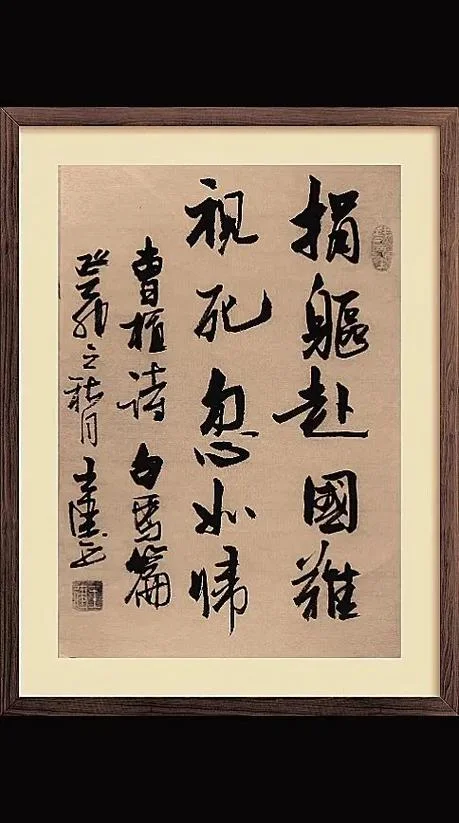 捐軀赴國難
視死忽如歸
曹植詩白馬篇
之秋月